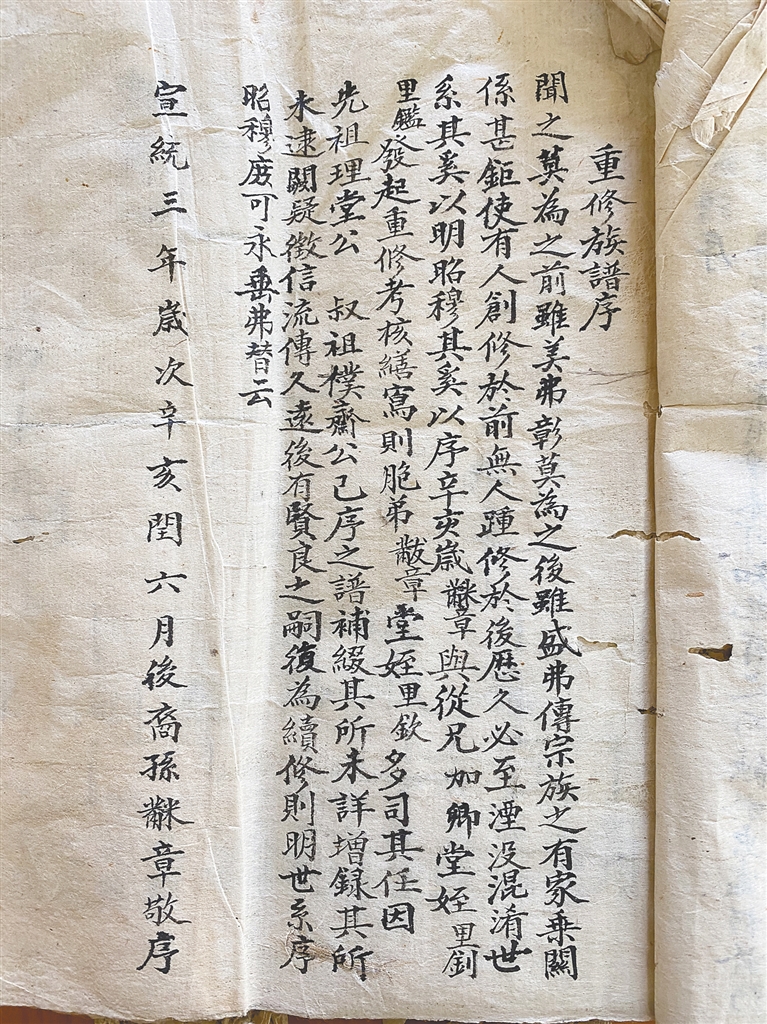 重修族譜序
聞之莫為之前雖美弗彰莫為之後雖盛弗傳宗族之有家乘關
係甚鉅使有人創修於前無人踵修於後歷久必至湮没混淆世
系其奚以明昭穆其奚以序辛亥歲黻章與從兄加卿堂姪里釗
里鑑發起重修考核繕寫則胞弟黻章堂姪里欽多司其任因
先祖理堂公 叔祖樸齋公已序之譜補綴其所未詳增録其所
未逮闕疑徵信流傳久遠後有賢良之嗣復為續修則明世系序
昭穆庶可永垂弗替云
宣統三年歲次辛亥閏六月後裔孫黼章敬序